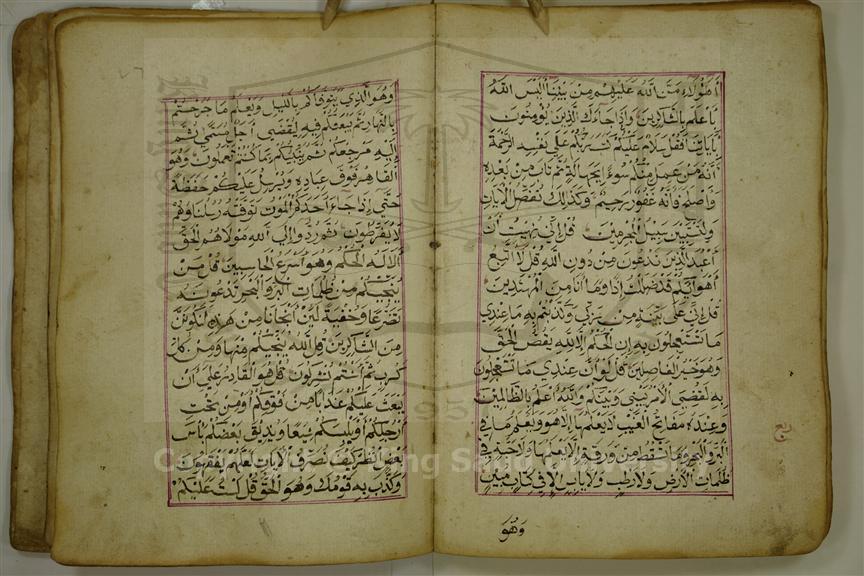 أهؤلاء من الله عليهم من بيننا أليس الله
بأعلم بالشاكرين وإذا جاءك الذين يؤمنون
بآياتنا فقل سلام عليكم كتب ربكم على نفسه الرحمة
أنه من عمل منكم سوءا بجهالة ثم تاب من بعده
وأصلح فأنه غفور رحيم وكذلك نفصل الآيات
ولتستبين سبيل المجرمين قل إني نهيت أن
أعبد الذين تدعون من دون الله قل لا أتبع
أهواءكم قد ضللت إذا وما أنا من المهتدين
قل إني على بينة من ربي وكذبتم به ما عندي
ما تستعجلون به إن الحكم إلا لله يقص الحق
وهو خير الفاصلين قل لو أن عندي ما تستعجلون
به لقضي الأمر بيني وبينكم والله أعلم بالظالمين
وعنده مفاتح الغيب لا يعلمها إلا هو ويعلم ما في
البر والبحر وما تسقط من ورقة إلا يعلمها ولا حبة في
ظلمات الأرض ولا رطب ولا يابس إلا في كتاب مبين
ربع
وهو
٧٦
وهو الذي يتوفاكم بالليل ويعلم ما جرحتم
بالنهار ثم يبعثكم فيه ليقضى أجل مسمى ثم
إليه مرجعكم ثم ينبئكم بما كنتم تعملون وهو
القاهر فوق عباده ويرسل عليكم حفظة
حتى إذا جاء أحدكم الموت توفته رسلنا وهم
لا يفرطون ثم ردوا إلى الله مولاهم الحق
ألا له الحكم وهو أسرع الحاسبين قل من
ينجيكم من ظلمات البر والبحر تدعونه
تضرعا وخفية لئن أنجانا من هذه لنكونن
من الشاكرين قل الله ينجيكم منها ومن كل
كرب ثم أنتم تشركون قل هو القادر على أن
يبعث عليكم عذابا من فوقكم أو من تحت
أرجلكم أو يلبسكم شيعا ويذيق بعضكم بأس
بعض انظر كيف نصرف الآيات لعلهم يفقهون
وكذب به قومك وهو الحق قل لست عليكم
1957
Copyright © King Saud University